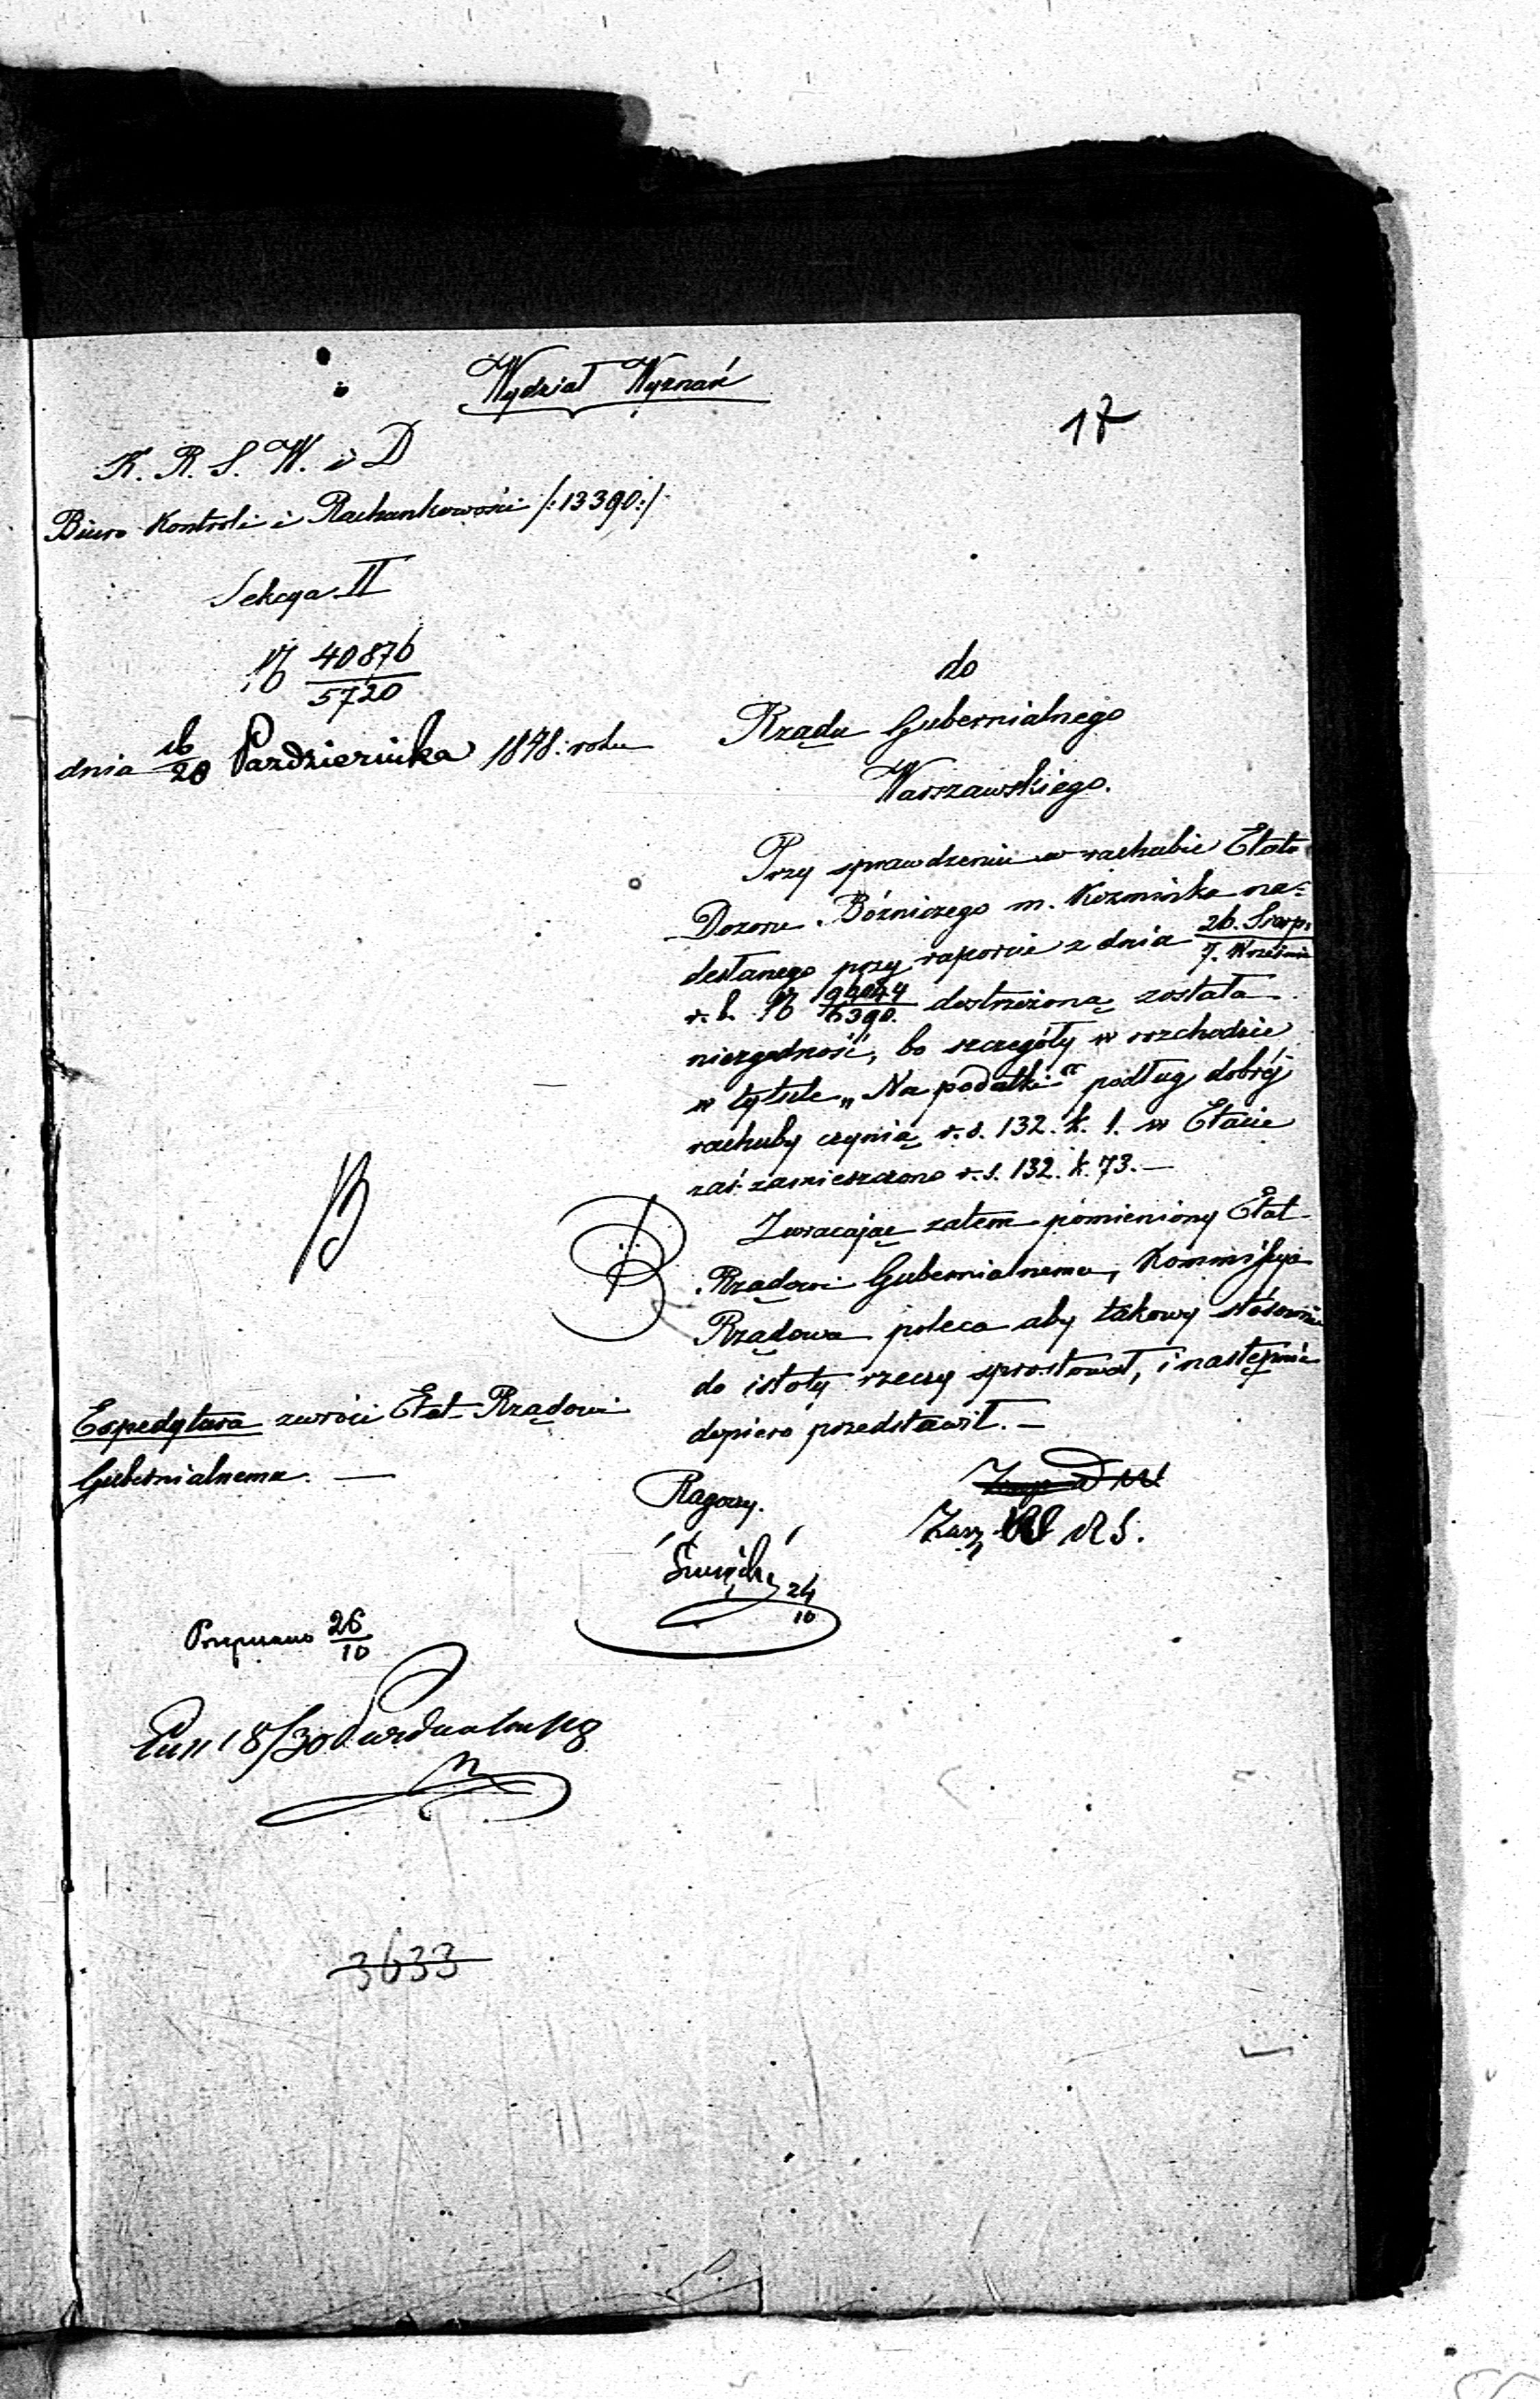 Wydział Wyznań
17
K. R. S. W. i D
Biuro Kontroli i Rachunkowości /:13390:/
Sekcya II
№ 40876/5720
dnia 16/28 Października 1848. roku
do
Rządu Gubernialnego
Warszawskiego.
Przy sprawdzeniu w rachubie Etatu
Dozoru Bóżniczego m. Koźminka na=
desłanego przy raporcie z dnia 26. Sierp./7. Wrześnie
r. b. № dostrzeżoną została
niezgodność, bo szczegóły w rozchodzie
w tytule „Na podatki" podług dobréj
rachuby czynią r. s. 132. k. 1. w Etacie
zaś zamieszczono r. s. 132. k. 73. —
Zwracając zatem pomieniony Etat
Rządowi Gubernialnemu, Kommissya
Rządowa poleca aby takowy stósownie
do istoty rzeczy sprostował, i następnie
dopiero przedstawił. —
Expedytura zwróci Etat Rządowi
Gubernialnemu. —
24/10
Przepisano 26/10
18/30
3633